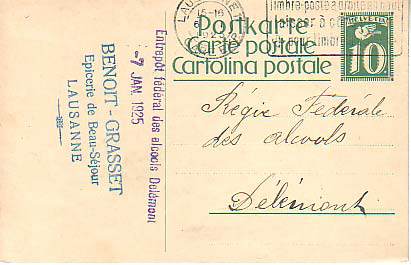 Postkarte
Carte postale
Cartolina postale
HELVETIA
10
LAUSANNE
15-16
timbre-poste
Entrepôt fédéral des alcools Delémont
-7 JAN. 1925
BENOIT - GRASSET
Epicerie de Beau-Séjour
LAUSANNE
Régie Féderale
des alcools
Délémont